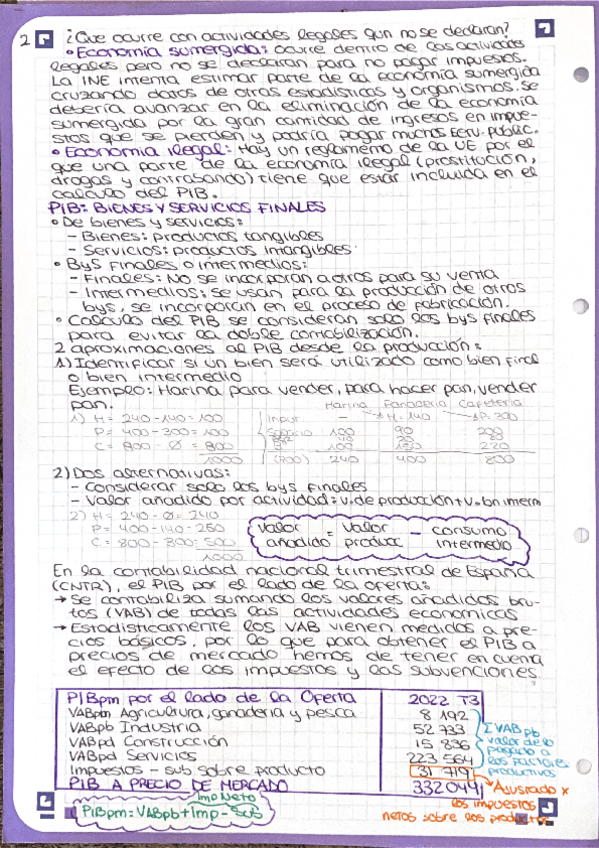 2 ¿Que ocurre con actividades legales qun no se declaran?
• Economía sumergida: ocurre dentro de las actividades
legales pero no se declaran para no pagar impuestos.
La INE intenta estimar parte de la economía sumergida
cruzando datos de otras estadisticas y organismos. Se
debería avanzar en la eliminación de la economía
sumergida por la gran cantidad de ingresos en impue-
stos que se pierden y podría pagar muchos serv. públic.
• Economía ilegal: Hay un reglamento de la UE por el
que una parte de la economía ilegal (prostitución,
drogas y contrabando) tiene que estar incluida en el
calculo del PIB.
PIB: BIENES Y SERVICIOS FINALES
• De bienes y servicios:
- Bienes: productos tangibles
- Servicios: productos intangibles
• BYS Finales o intermedios:
- Finales: No se incorporan a otros para su venta
- Intermedios: se usan para la producción de otros
bys, se incorporan en el proceso de fabricación.
• Calculo del PIB se consideran solo los bys finales
para evitar la doble contabilización.
2 aproximaciones al PIB desde la producción:
1) Identificar si un bien será utilizado como bien final
o bien intermedio
Ejemplo: Harina para vender, para hacer pan, vender
pan.
Harina Panaderia Cafeteria
1) H = 240 - 140 = 100
Input - H = 140 P = 300
P = 400 - 300 = 100
Salario 100 90 200
C = 800 - Ø = 800
220
1000
240 400 800
2) Dos alternativas:
- Considerar solo los bys finales
- Valor añadido por actividad = v. de producción + v. bn interm
2) H = 240 - Ø = 240
P = 400 - 140 = 260
C = 800 - 300 = 500
1000
valor añadido = valor produc - consumo intermedio
En la contabilidad nacional trimestral de España
(CNTR), el PIB por el lado de la oferta:
→ Se contabiliza sumando los valores añadidos bru-
tos (VAB) de todas las actividades economicas
→ Estadisticamente los VAB vienen medidos a pre-
cios básicos, por lo que para obtener el PIB a
precios de mercado hemos de tener en cuenta
el efecto de los impuestos y las subvenciones
PIBpm por el lado de la Oferta 2022 T3
VABpm Agricultura, ganaderia y pesca 8 192
VABpb Industria 52 733
VABpd Construcción 15 836
VABpd Servicios 223 564
Impuestos - sub sobre producto 31 719
PIB A PRECIO DE MERCADO 332 044
Σ VABpb
valor de lo
pagado a
los factores
productivos
→ Ajustado x
los impuestos
netos sobre los productos
Imp Neto
PIBpm = VABpb + Imp - Sub